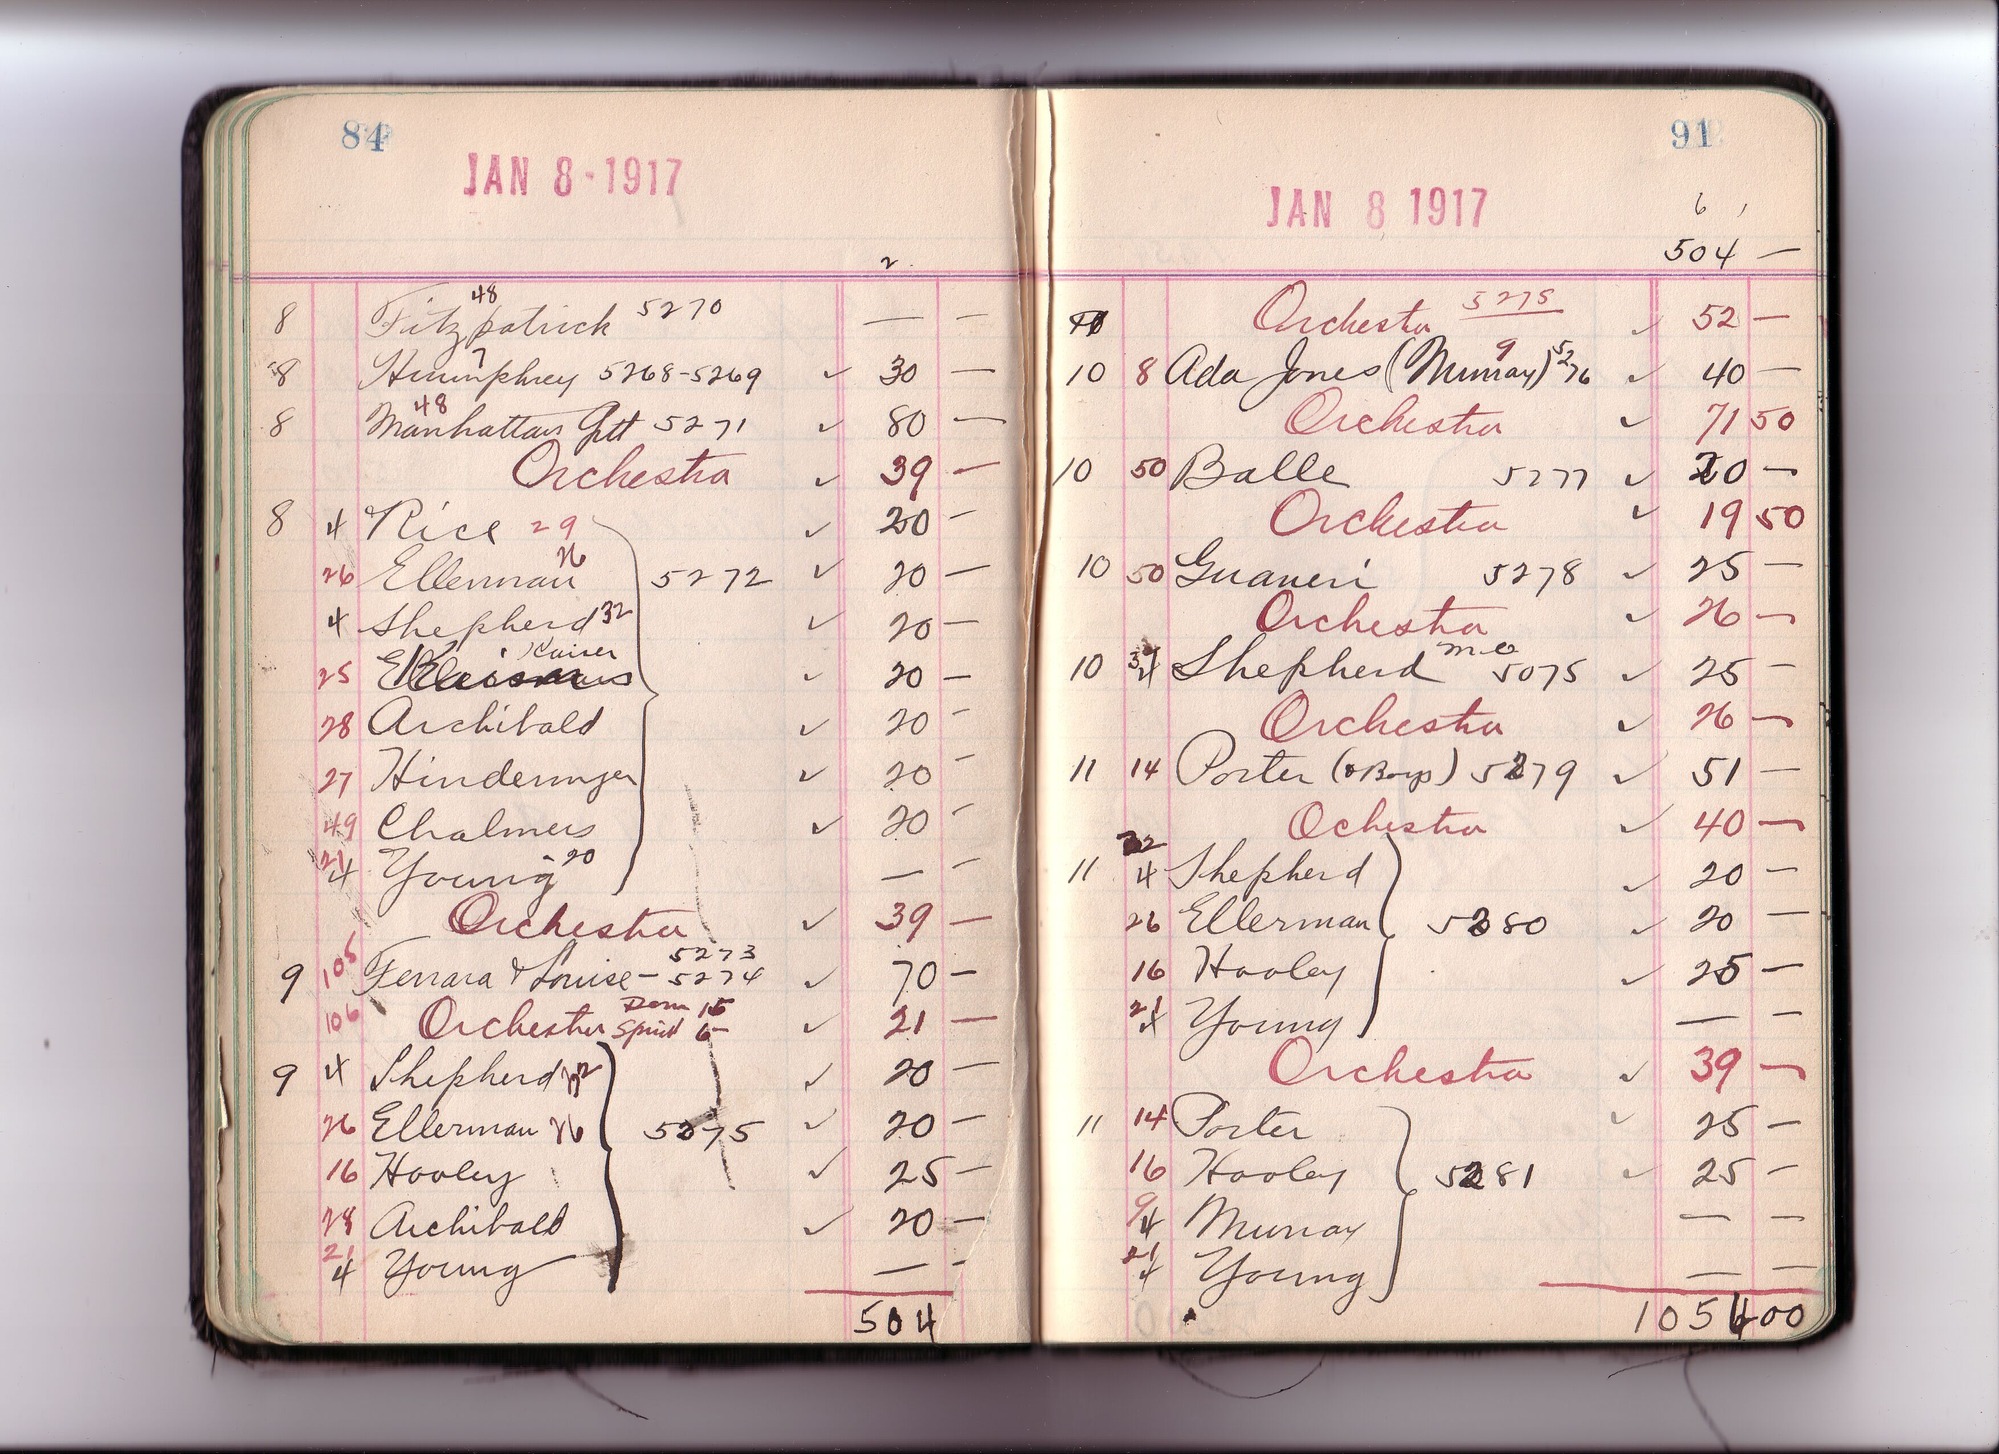 84
JAN 8-1917
2
8 Fitzpatrick 48 5270 — —
8 Humphrey 7 5268-5269 ✓ 30 —
8 Manhattan Qtt 48 5271 ✓ 80 —
Orchestra ✓ 39 —
8 4 Rice 29 ✓ 20 —
26 Ellerman 26 5272 ✓ 20 —
4 Shepherd 32 ✓ 20 —
25 Kaiser ✓ 20 —
28 Archibald ✓ 20 -
27 Hindermyer ✓ 20 -
49 Chalmers ✓ 20 -
21 4 Young 20 — -
Orchestra ✓ 39 —
5273
9 105 Ferrara & Louise — 5274 ✓ 70 —
106 Orchestra Dom 15 Spird 6- ✓ 21 —
9 4 Shepherd 32 ✓ 20 —
26 Ellerman 26 5275 ✓ 20 —
16 Hooley ✓ 25 —
28 Archibald ✓ 20 —
21 4 Young — -
504
91
JAN 8 1917
6 ,
504 —
10 Orchestra 5275 ✓ 52 —
10 8 Ada Jones (Murray) 9 5276 ✓ 40 —
Orchestra ✓ 71 50
10 50 Balle 5277 ✓ 20 —
Orchestra ✓ 19 50
10 50 Guaneri 5278 ✓ 25 —
Orchestra ✓ 26 —
10 32 4 Shepherd 5075 ✓ 25 —
Orchestra ✓ 26 —
11 14 Porter (& Boys) 5279 ✓ 51 —
Ochestra ✓ 40 —
32
11 4 Shepherd ✓ 20 —
26 Ellerman 5280 ✓ 20 —
16 Hooley ✓ 25 —
21 4 Young — —
Orchestra ✓ 39 —
11 14 Porter ✓ 25 —
16 Hooley 5281 ✓ 25 —
9 4 Murray — —
21 4 Young — —
1054 00